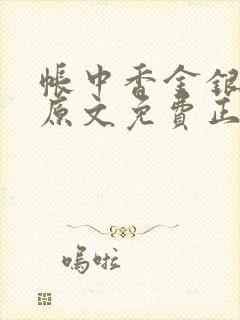 帐中香金银
原文免費正
嗚啦